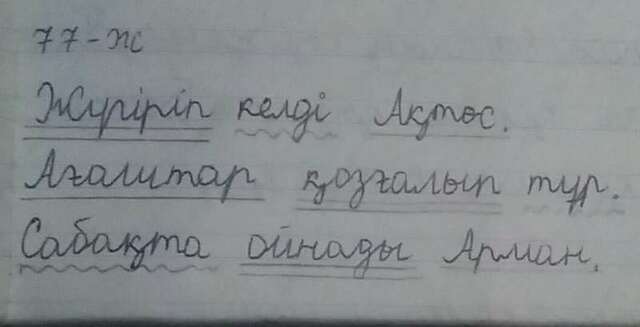 77-ж
Жүгіріп келді Ақтөс.
Ағаштар қозғалып тұр.
Сабақта ойнады Арман.